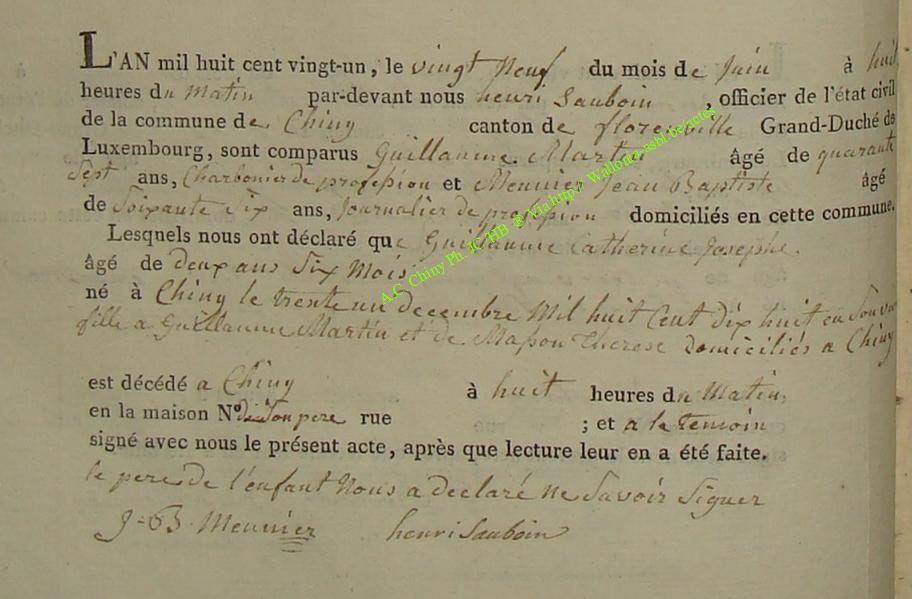 L'AN mil huit cent vingt-un, le vingt Neuf du mois de Juin à huit
heures du Matin par-devant nous henri Sauboin, officier de l'état civil
de la commune de Chiny canton de florenville Grand-Duché de
Luxembourg, sont comparus Guillaume Martin âgé de quarante
Sept ans, Charbonier de profession et Meunier Jean Baptiste âgé
de Soixante Six ans, Journalier de profession domiciliés en cette commune.
Lesquels nous ont déclaré que Guillaume Catherine Josephe.
âgé de deux ans Six Mois
né à Chiny le trente un decembre Mil huit Cent dix huit en Son vivant
fille a Guillaume Martin et de Masson Therese domiciliés a Chiny
est décédé a Chiny à huit heures du Matin,
en la maison N° de Son pere rue ; et a le temoin
signé avec nous le présent acte, après que lecture leur en a été faite.
le pere de l'enfant Nous a declaré ne Savoir Signer
J-B Meunier henri Sauboin
A.C. Chiny Ph. JC HB ® Via http:// Wallonia-asbl.be/actes